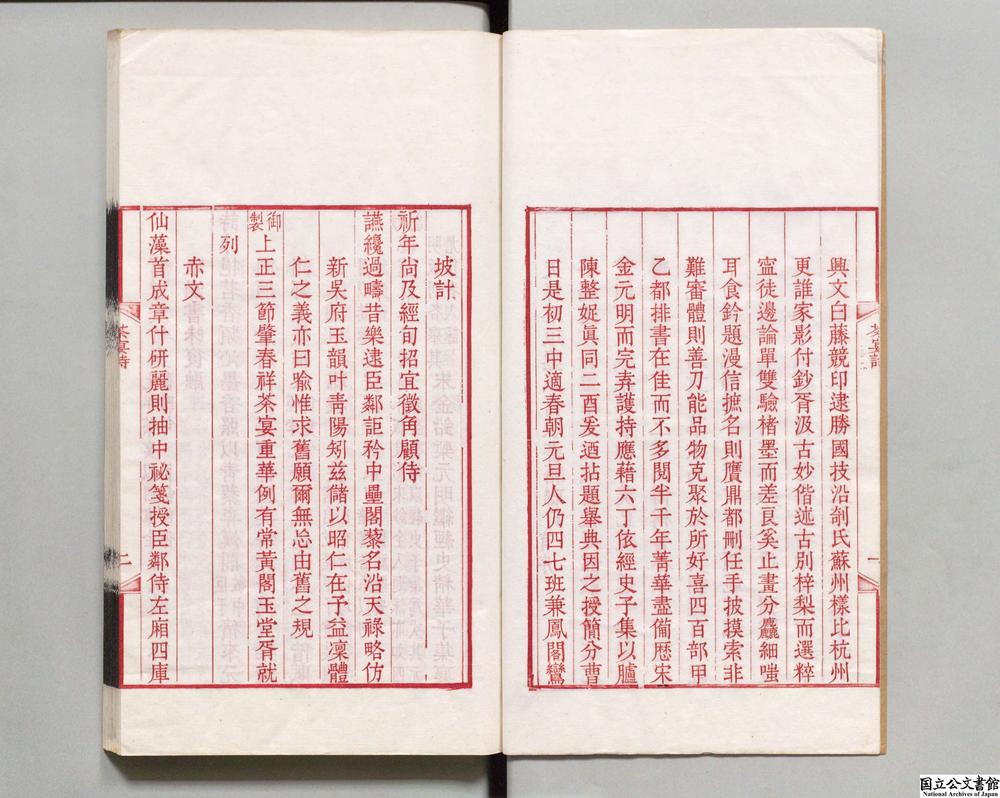 興文白藤競印逮勝國技沿剞氏蘇州樣比杭州
更誰家影付鈔胥汲古妙偕述古別梓梨而選粹
寍徒邊論單雙驗楮墨而差良奚止畫分麤細嗤
耳食鈐題漫信摭名則贋鼎都刪任手披摸索非
難審體則善刀能品物克聚於所好喜四百部甲
乙都排書在佳而不多閱半千年菁華盡備歷宋
金元明而完弆護持應藉六丁依經史子集以臚
陳整娖眞同二酉爰迺拈題舉典因之授簡分曹
日是初三中適春朝元旦人仍四七班兼鳳閣鸞
茶宴詩
一
坡計
祈年尙及經旬招宜徵角顧侍
讌纔過疇昔樂逮臣鄰詎矜中壘閣藜名沿天祿略仿
新吳府玉韻叶靑陽矧兹儲以昭仁在予益凜體
仁之義亦曰喩惟求舊願爾無忘由舊之規
御製上正三節肇春祥茶宴重華例有常黃閣玉堂胥就
列
赤文
仙藻首成章什硏麗則抽中祕笺授臣鄰侍左廂四庫
茶宴詩
二
国立公文書館
National Archives of Japan